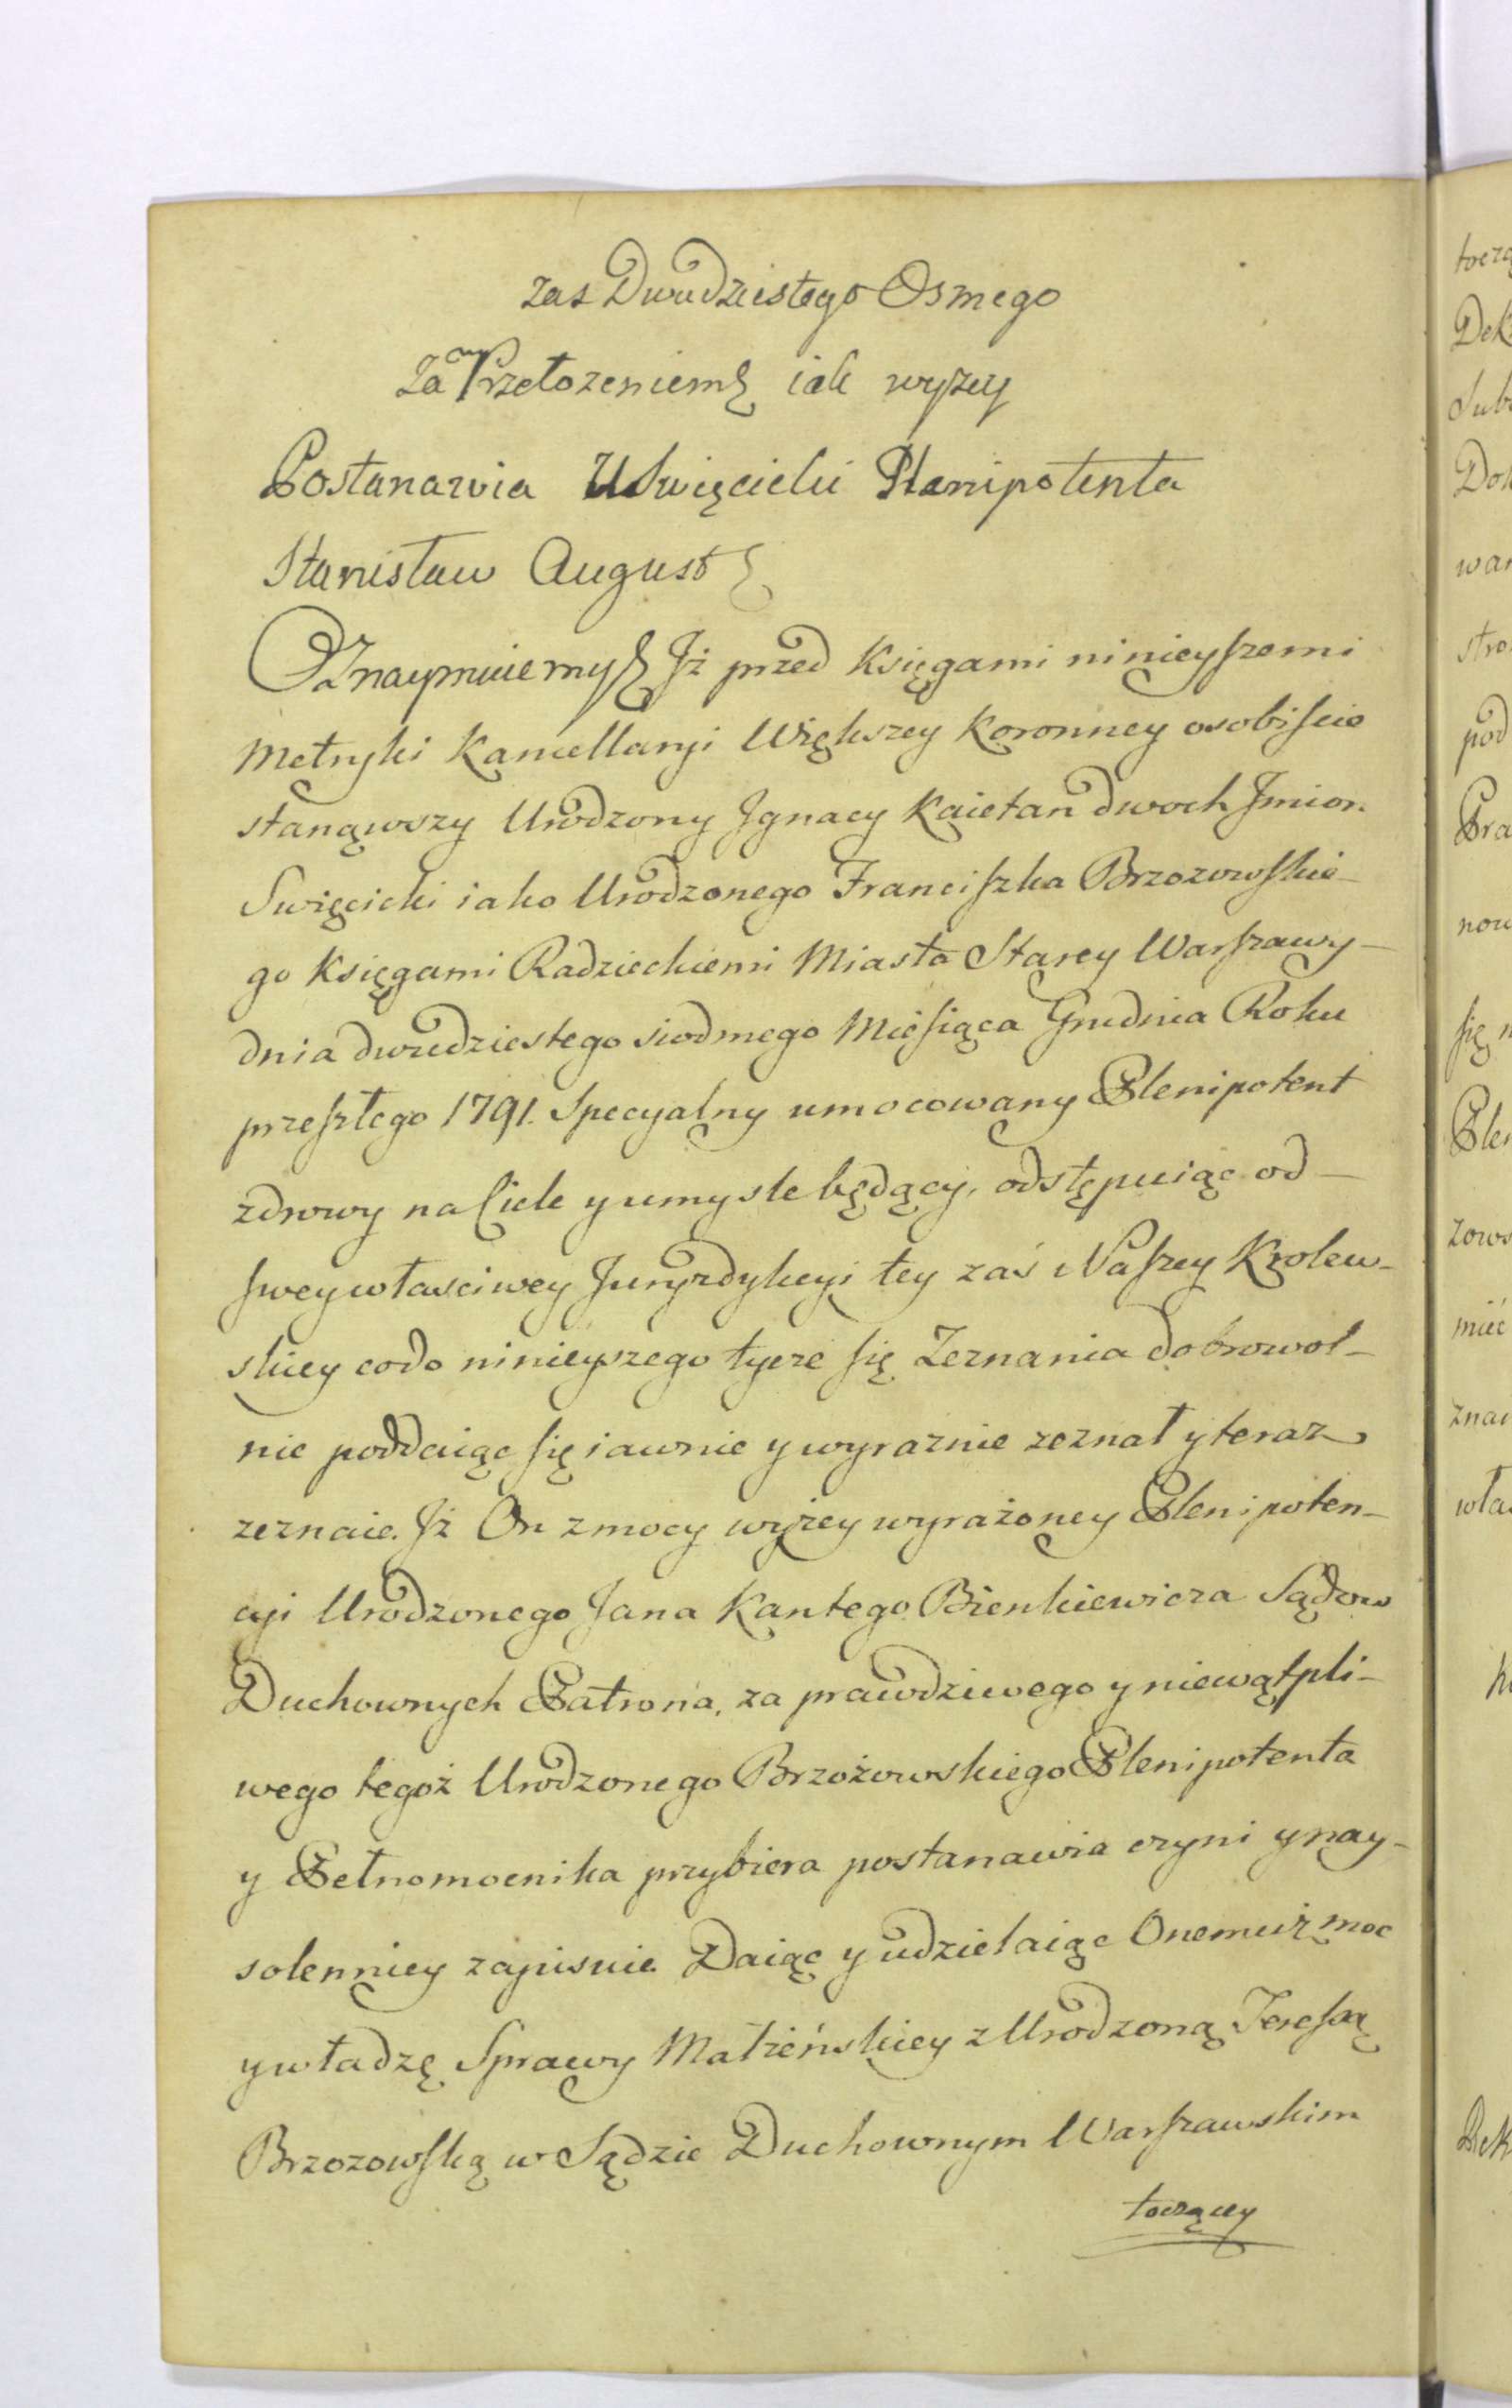 zas Dwudziestego Osmego
Za Przełozeniem iak wyzey
Postanawia U Swięcicki Plenipotenta
Stanisław August
Oznaymuiemy Jż przed Księgami ninieyszemi
Metryki Kancellaryi Większey Koronney osobiscie
stanąwszy Urodzony Jgnacy Kaietan dwoch Jmion
Swięcicki iako Urodzonego Franciszka Brzozowskie-
go Księgami Radzieckiemi Miasta Starey Warszawy-
dnia dwudziestego siodmego Miesiąca Grudnia Roku
przeszłego 1791. Specyalny umocowany Plenipotent
zdrowy na Ciele y umysle będący, odstępuiąc od-
swey własciwey Juryzdykcyi tey zaś Naszey Krolew-
skiey codo ninieyszego tycze się Zeznania dobrowol-
nie poddaiąc się iawnie y wyraznie zeznał y teraz
zeznaie. Jż On z mocy wyżey wyrażoney Plenipoten-
cyi Urodzonego Jana Kantego Bienkiewicza Sądow
Duchownych Patrona, za prawdziwego y niewątpli-
wego tegoż Urodzonego Brzożowskiego Plenipotenta
y Pełnomocnika przybiera postanawia czyni y nay-
solenniey zapisuie. Daiąc y udzielaiąc Onemuż moc
y władzę Sprawy Małżeńskiey z Urodzoną Teressą
Brzozowską w Sądzie Duchownym Warszawskim
toczącey